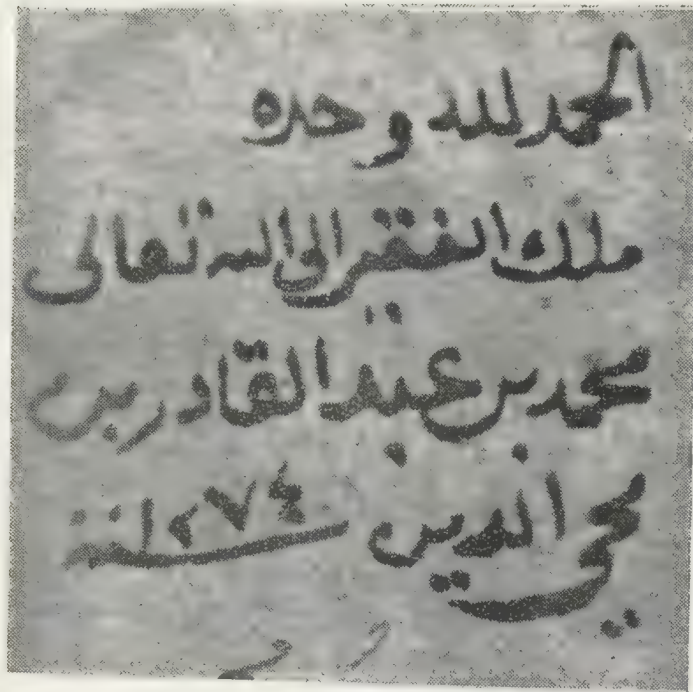 الحمد لله وحده
ملك الفقير الى الله تعالى
محمد بن عبد القادر بن
محي الدين ١٢٧٤ سنة